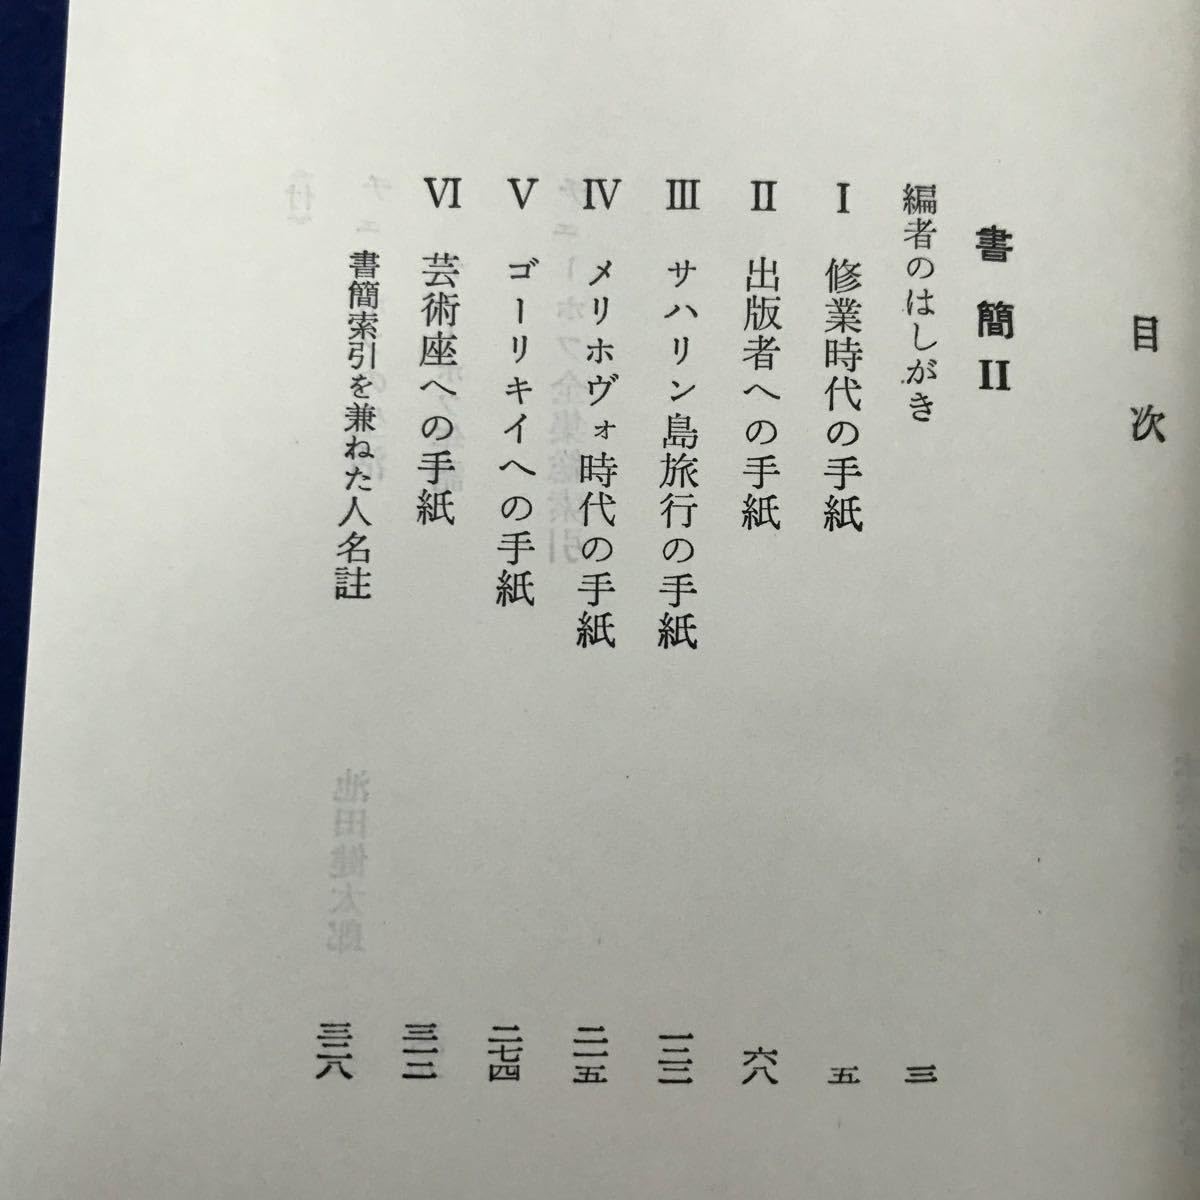 目次
書簡II
編者のはしがき 三
I 修業時代の手紙 五
II 出版者への手紙 六八
III サハリン島旅行の手紙
IV メリホヴォ時代の手紙 二一五
V ゴーリキイへの手紙 二七四
VI 芸術座への手紙
書簡索引を兼ねた人名註 三二八
チェーホフ全集総索引
池田健太郎